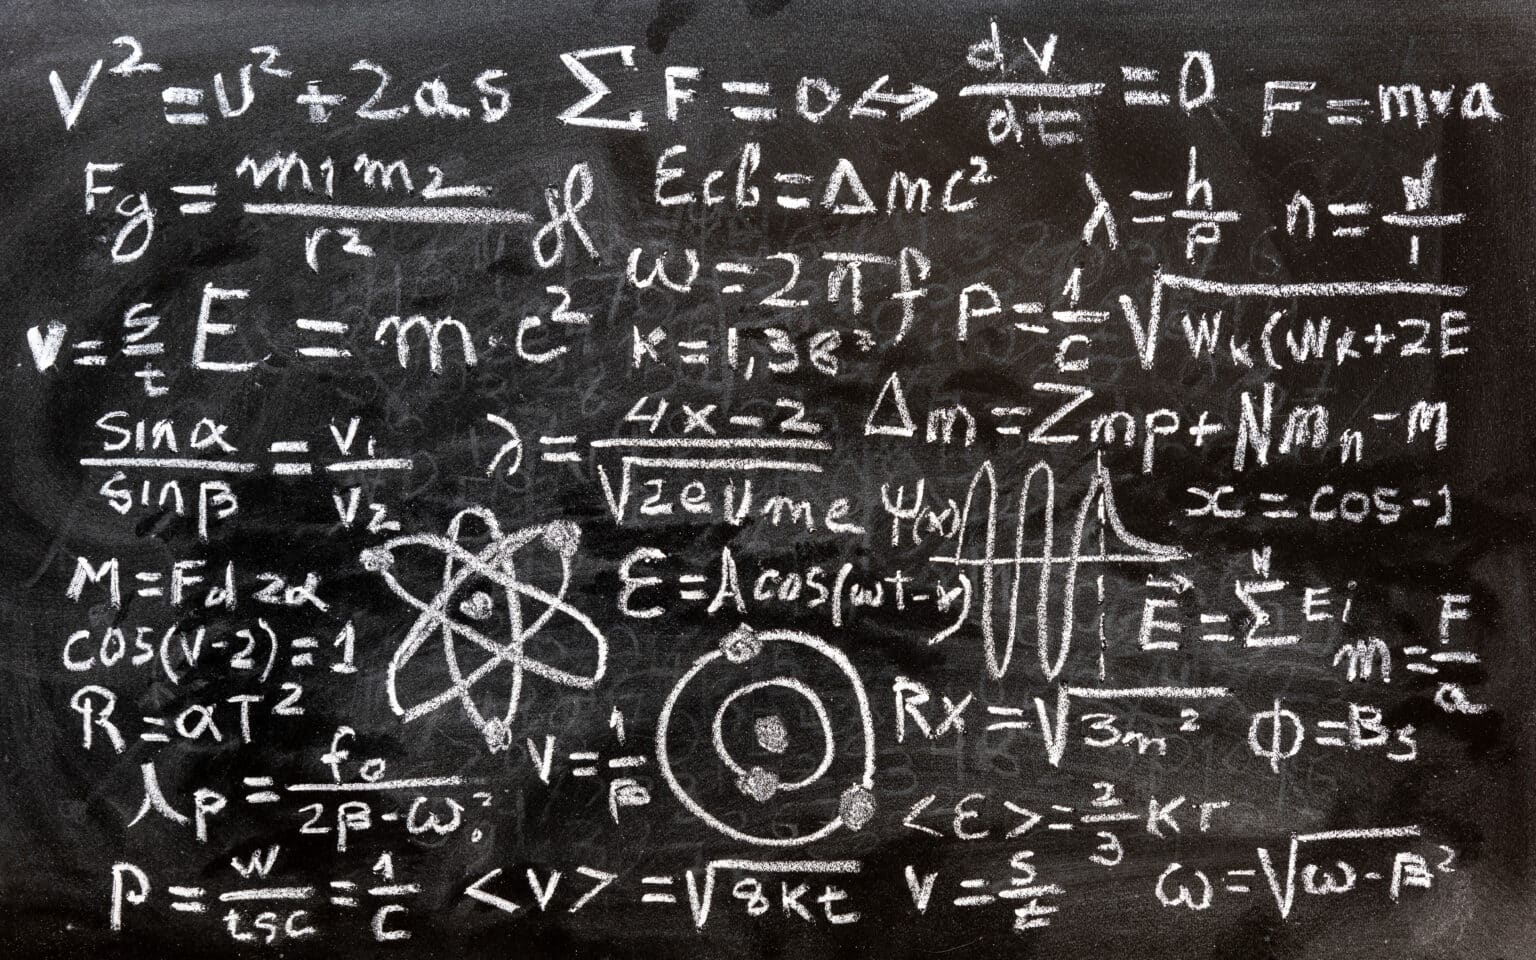 V² = U² + 2as  ΣF = 0 ⇔ dv/dt = 0  F = m·a
Fg = m1m2/r² γ  Ecb = Δmc²  λ = h/p  n = W/1
ω = 2πf
v = s/t  E = m·c²  K = 1,38²  P = 1/c √Wk(Wk+2E
sinα/sinβ = V1/V2  λ = 4x-2/√2eUme  Δm = Zmp + Nmn - m
Ψ(x)  x = cos-1
M = Fd2α  Ɛ = Acos(ωt-v)  E⃗ = Σ Ei
cos(v-2) = 1  m = F/a
R = αT²  v = 1/β  Rx = √3m²  Φ = Bs
λp = fo/2β-ω²o  <Ɛ> = 2/3 KT
P = W/tsc = 1/c  <v> = √8Kt  v = s/t  ω = √ω-β²